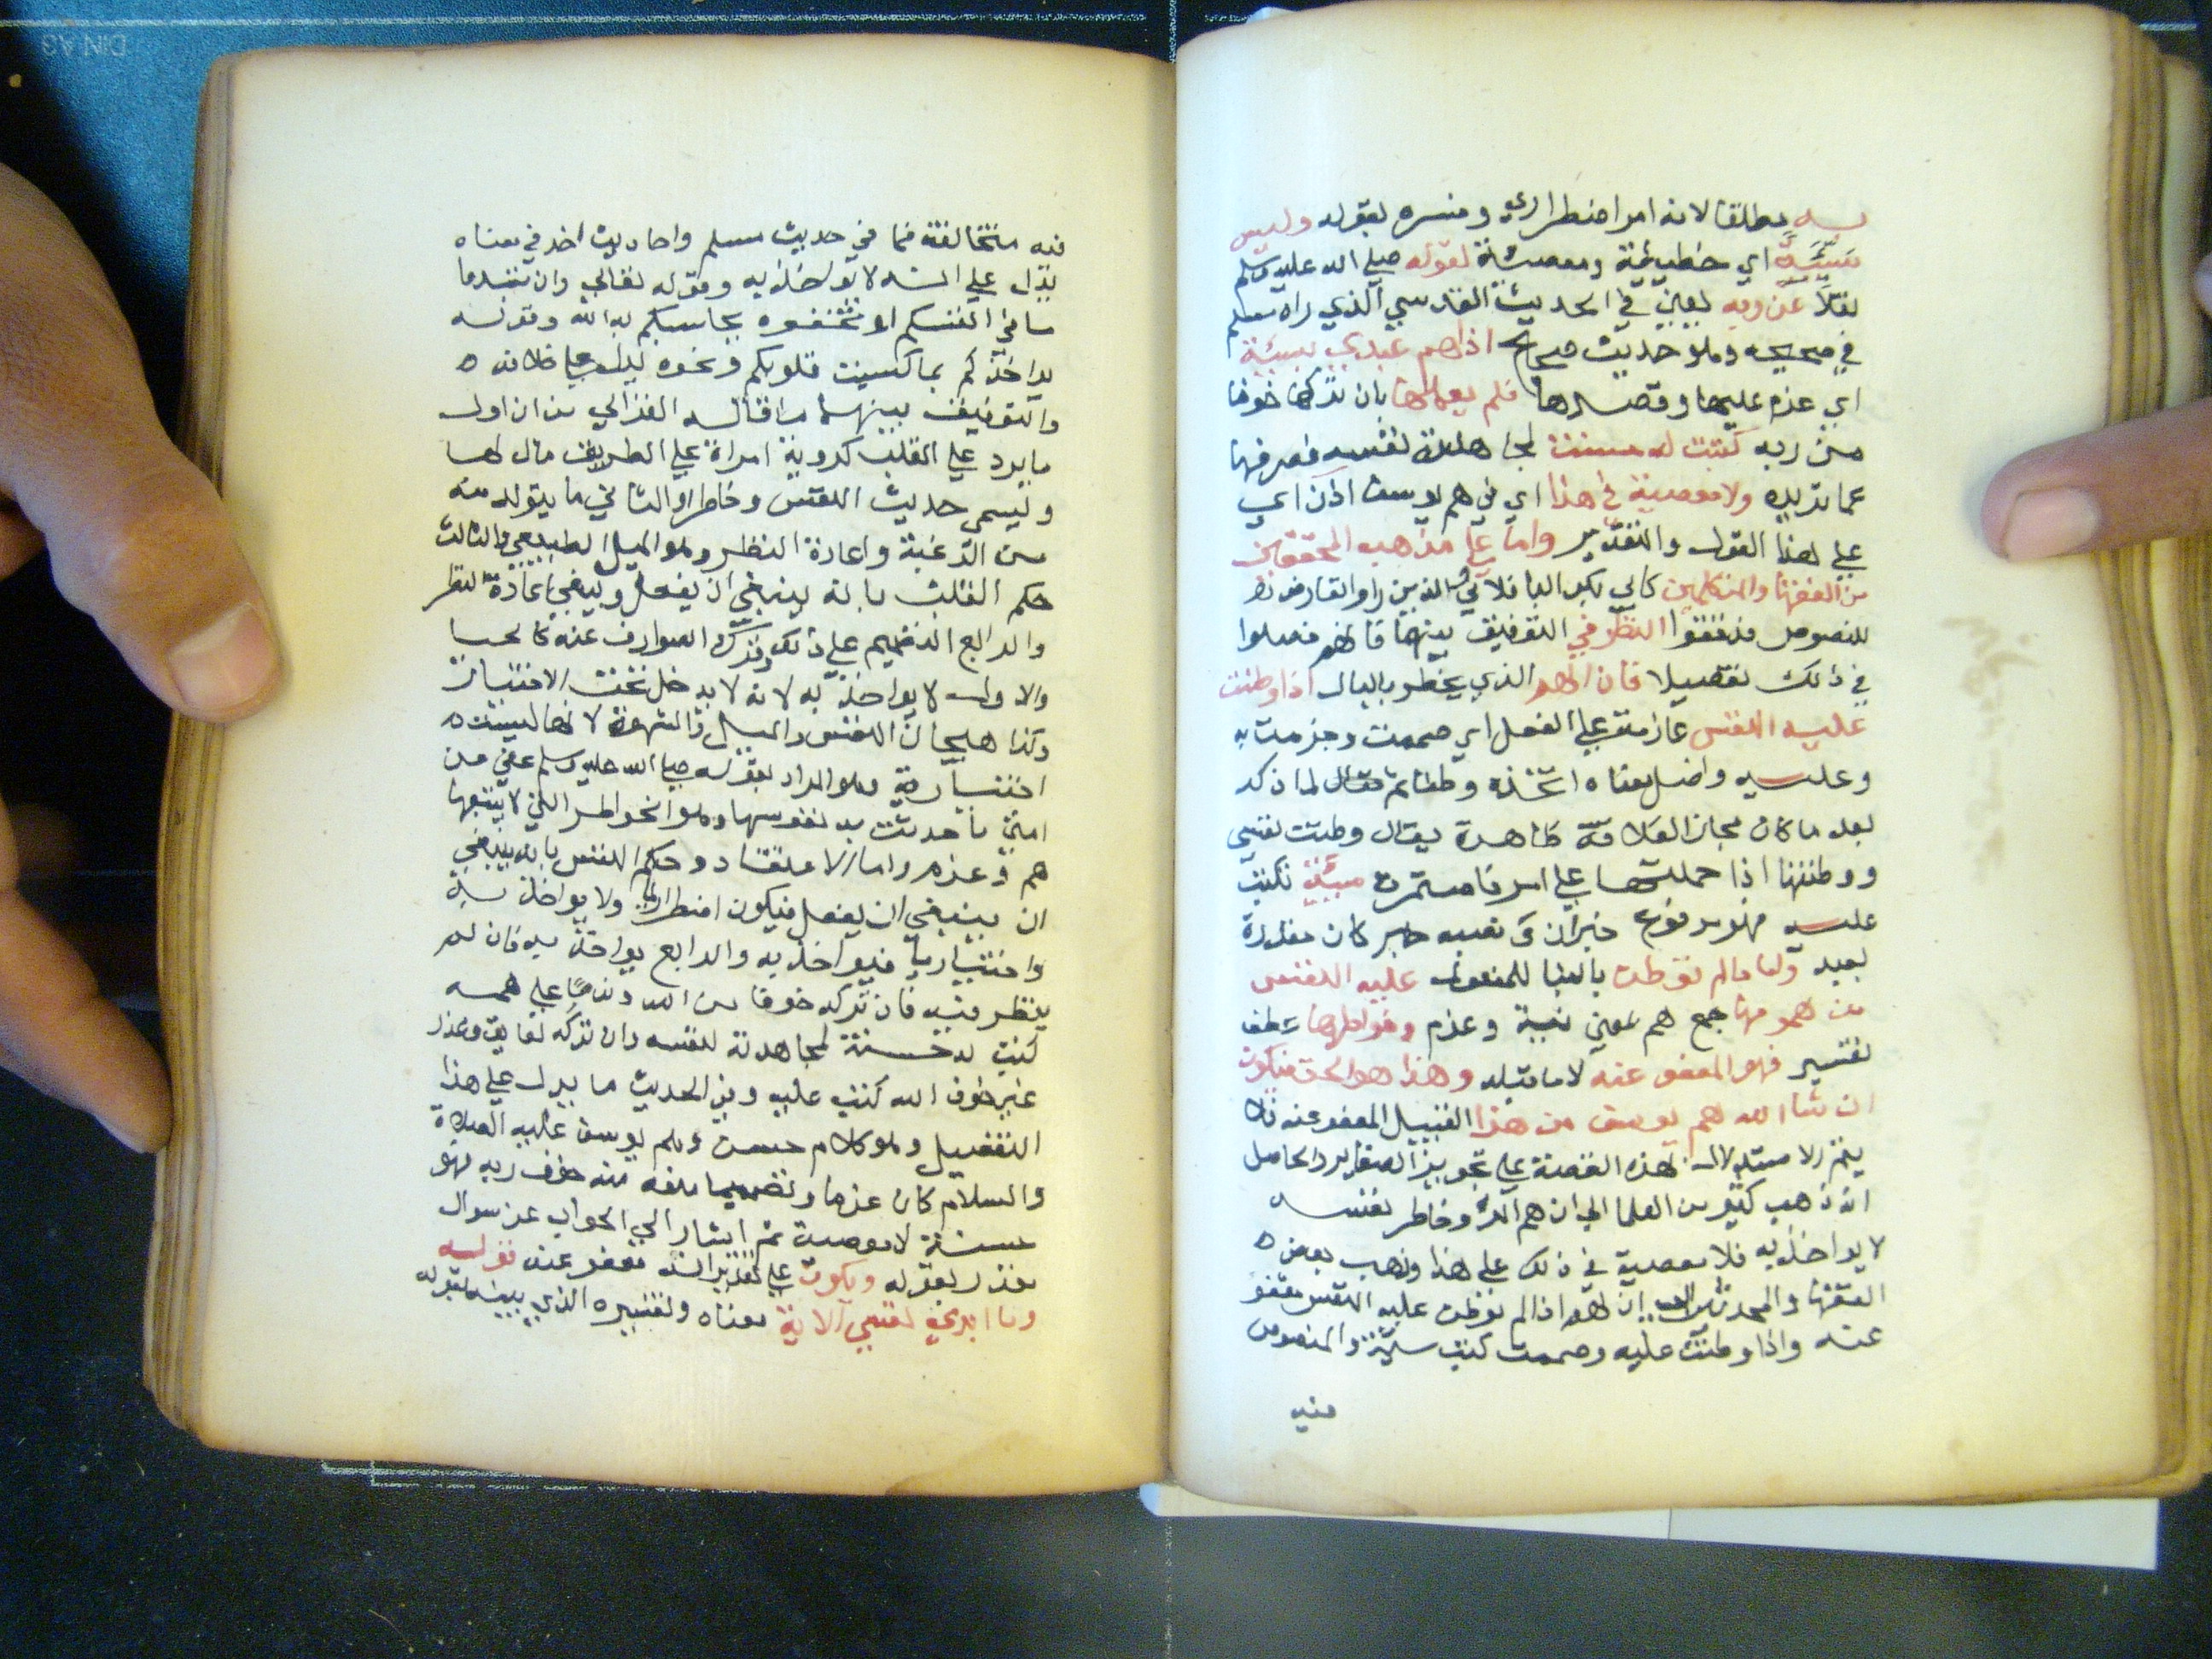 به مطلقا لانه امر اضطراري وفسره بقوله وليس
سيئة اي خطيئة ومعصية لقوله صلي الله عليه وسلم
نقلا عن ربه يعني في الحديث القدسي الذي راه مسلم
في صحيحه وهو حديث صحيح اذا هم عبدي بسيئة
اي عزم عليها وقصدها فلم يعملها بان تركها خوفا
من ربه كتبت له حسنة لمجاهدة نفسه فصرفها
عما تريده ولا معصية في هذا اي في هم يوسف اذن اي
علي هذا القول والتقدير واما علي مذهب المحققين
من الفقها والمتكلمين كابي بكر الباقلاني والذين راوا تعارض
للنصوص فدققوا النظر في التوفيق بينها فانهم فصلوا
في ذلك تفصيلا فان الهم الذي يخطر بالبال اذا وطنت
عليه النفس عازمة علي الفعل اي صممت وجزمت به
وعليه واصل معناه اتخذه وطنا ثم يقال لما ذكر
بعد ما كان مجاز العلاقة ظاهرة يقال وطنت نفسي
ووطنتها اذا حملتها علي امر فاستمرت سيئة تكتب
عليه فهو مرفوع خبر ان و نصبه خبر كان مقدرة
بعيد واما ما لم توطن بالبنا للمفعول عليه النفس
من همومها جمع هم بمعني نية وعزم وخواطرها عطف
تفسير فهو المعفو عنه لا ما قبله وهذا هو الحق فيكون
ان شا الله هم يوسف من هذا القبيل المعفو عنه فلا
يتم الاستدلال بهذه القصة علي تجويز الصغاير والحاصل
انه ذهب كثير من العلما الي ان هم المرء وخاطر نفسه
لا يواخذ به فلا معصية في ذلك علي هذا وذهب بعض
الفقها والمحدثين الي ان الهم اذا لم توطن عليه النفس معفو
عنه واذا وطنت عليه وصممت كتبت سيئة والنصوص
فيه
فيه متخالفة فما في حديث مسلم واحاديث اخر في معناه
يدل علي انه لا يواخذ به وقوله تعالي وان تبدوا
ما في انفسكم او تخفوه يحاسبكم به الله وقوله
يواخذكم بما كسبت قلوبكم ونحوه يدل علي خلافه
والتوفيق بينهما ما قاله الغزالي من ان اول
ما يرد علي القلب كروية امراة علي الطريق مال لها
وليسمي حديث النفس وخاطرا والثاني ما يتولد منه
من الرغبة واعادة النظر وهو الميل الطبيعي والثالث
حكم القلب بانه ينبغي ان يفعل وينبغي اعادة النظر
والرابع التصميم علي ذلك وترك الصوارف عنه كالحيا
والاول لا يواخذ به لانه لا يدخل تحت الاختيار
وكذا هيجان النفس والميل والشهوة لانها ليست
اختيارية وهو المراد بقوله صلي الله عليه وسلم عفي عن
امتي ما حدثت به نفوسها وهو الخواطر التي لا يتبعها
هم وعزم واما الاعتقاد وحكم النفس بانه ينبغي
ان ينبغي ان يفعل فيكون اضطراريا ولا يواخذ به
واختياريا فيواخذ به والرابع يواخذ به فان لم
ينظر فيه فان تركه خوفا من الله وندما علي همه
كتبت له حسنة لمجاهدته لنفسه وان تركه لعايق وعذر
غير خوف الله كتبت عليه وفي الحديث ما يدل علي هذا
التفصيل وهو كلام حسن وهم يوسف عليه الصلاة
والسلام كان عزما وتصميما منعه منه خوف ربه فهو
حسنة لا معصية ثم اشار الي الجواب عن سوال
مقدر بقوله ويكون علي تقدير انه معفو عنه قوله
وما ابري نفسي الاية معناه وتفسيره الذي بينه بقوله